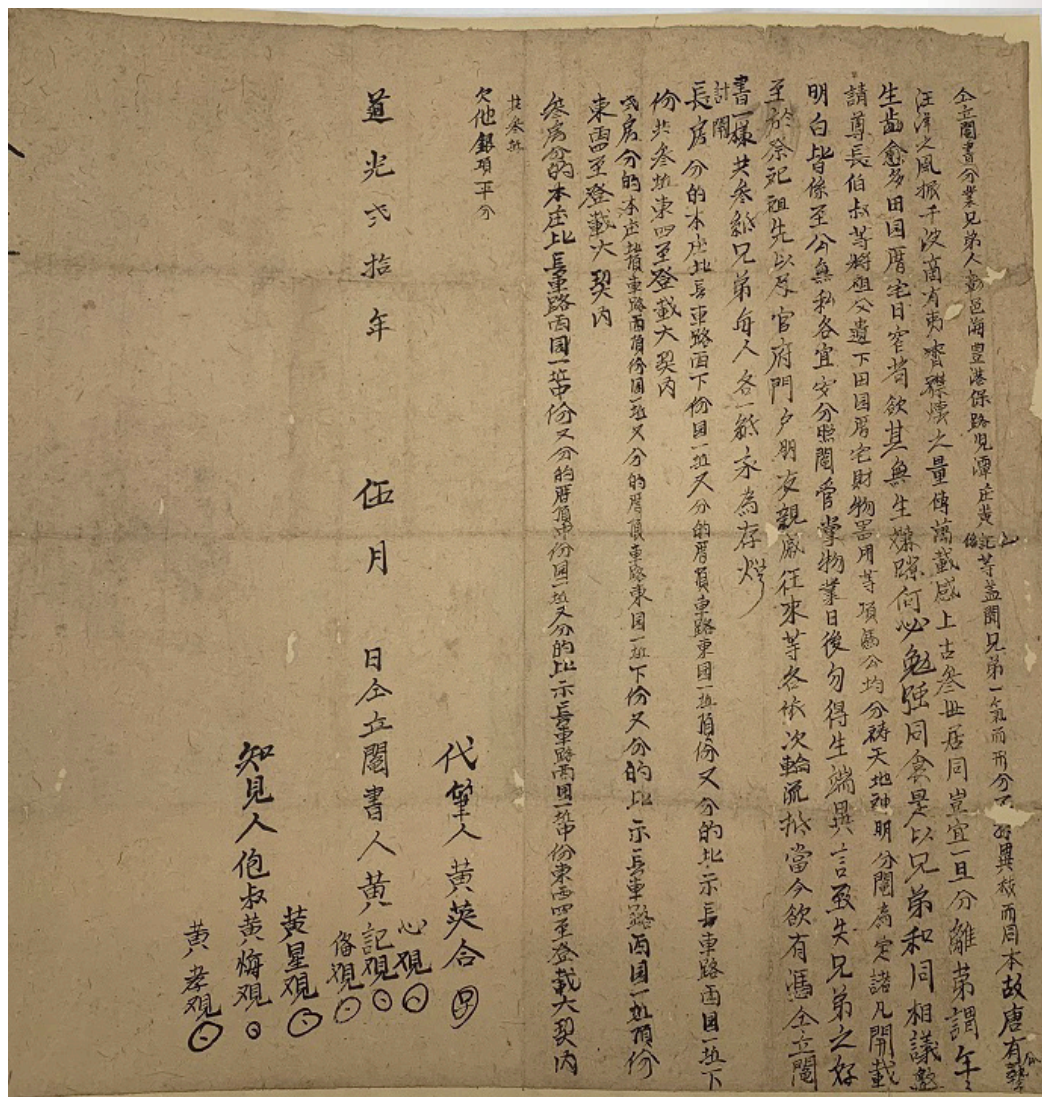 仝立鬮書分業兄弟人彰邑海豊港保路兒潭庄黃心記俻等盖聞兄弟一氣而形分不異枝而同本故唐有
汪洋之風振千波商有夷齊襟懷之量傳萬載感上古叁世居同豈宜一旦分離苐謂年
生齒愈多田园厝宅日窄若欲其無生嫌隙何必勉强同食是以兄弟和同相議
請尊長伯叔等將祖父遺下田园厝宅財物器用等項憑公均分祷天地神明分鬮為定諸凡開載
明白皆係至公無私各宜安分照鬮管掌物業日後勿得生端異言致失兄弟之好
至於祭祀祖先以及官府門户朋友親戚往來等各依次輪流抵當今欲有憑仝立鬮
書一樣共叁紙兄弟每人各一紙永為存炤
計開
長房分的本庄北長車路西下份园一坵又分的厝頂車路東园一坵頂份又分的北示長車路西园一坵下
份共叁坵東四至登載大契内
弍房分的本庄車路西頂份园一坵又分的厝頂車路東园一坵下份又分的北示長車路西园一坵頂份
東西四至登載大契内
叁房分的本庄北長車路西园一坵中份又分的厝頂中份园一坵又分的北示長車路西园一坵中份東西四至登載大契内
共叁坵
欠他銀項平分
代筆人黃英合
道光弍拾年伍月日仝立鬮書人黃心觀記觀俻觀
黃星觀
知見人伯叔黃海觀
黃孝觀